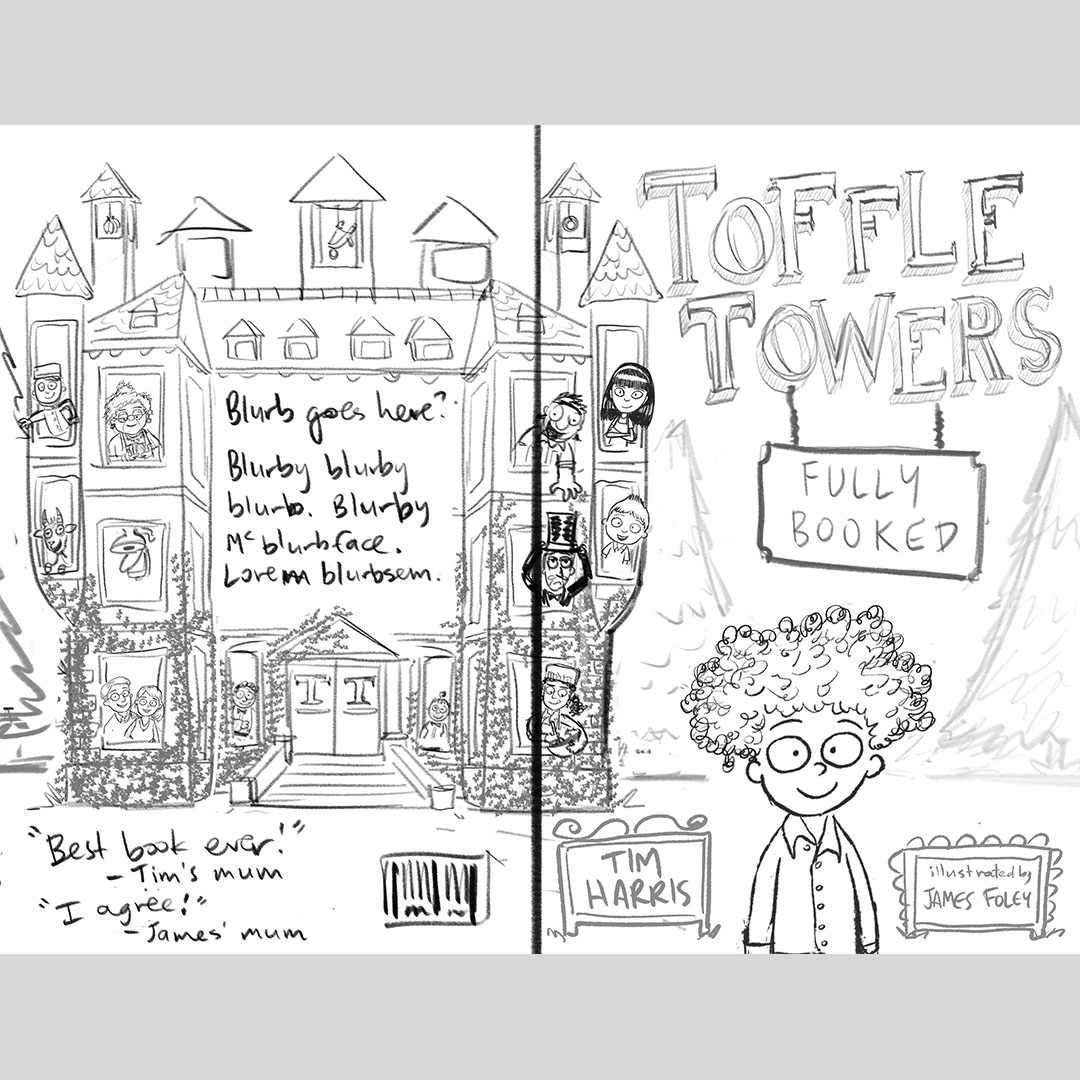 Blurb goes here?
Blurby blurby
blurb. Blurby
Mc blurbface.
Lorem blurbsem.
T T
"Best book ever!"
- Tim's mum
"I agree!"
- James' mum
TOFFLE
TOWERS
FULLY
BOOKED
TIM
HARRIS
illustrated by
JAMES FOLEY